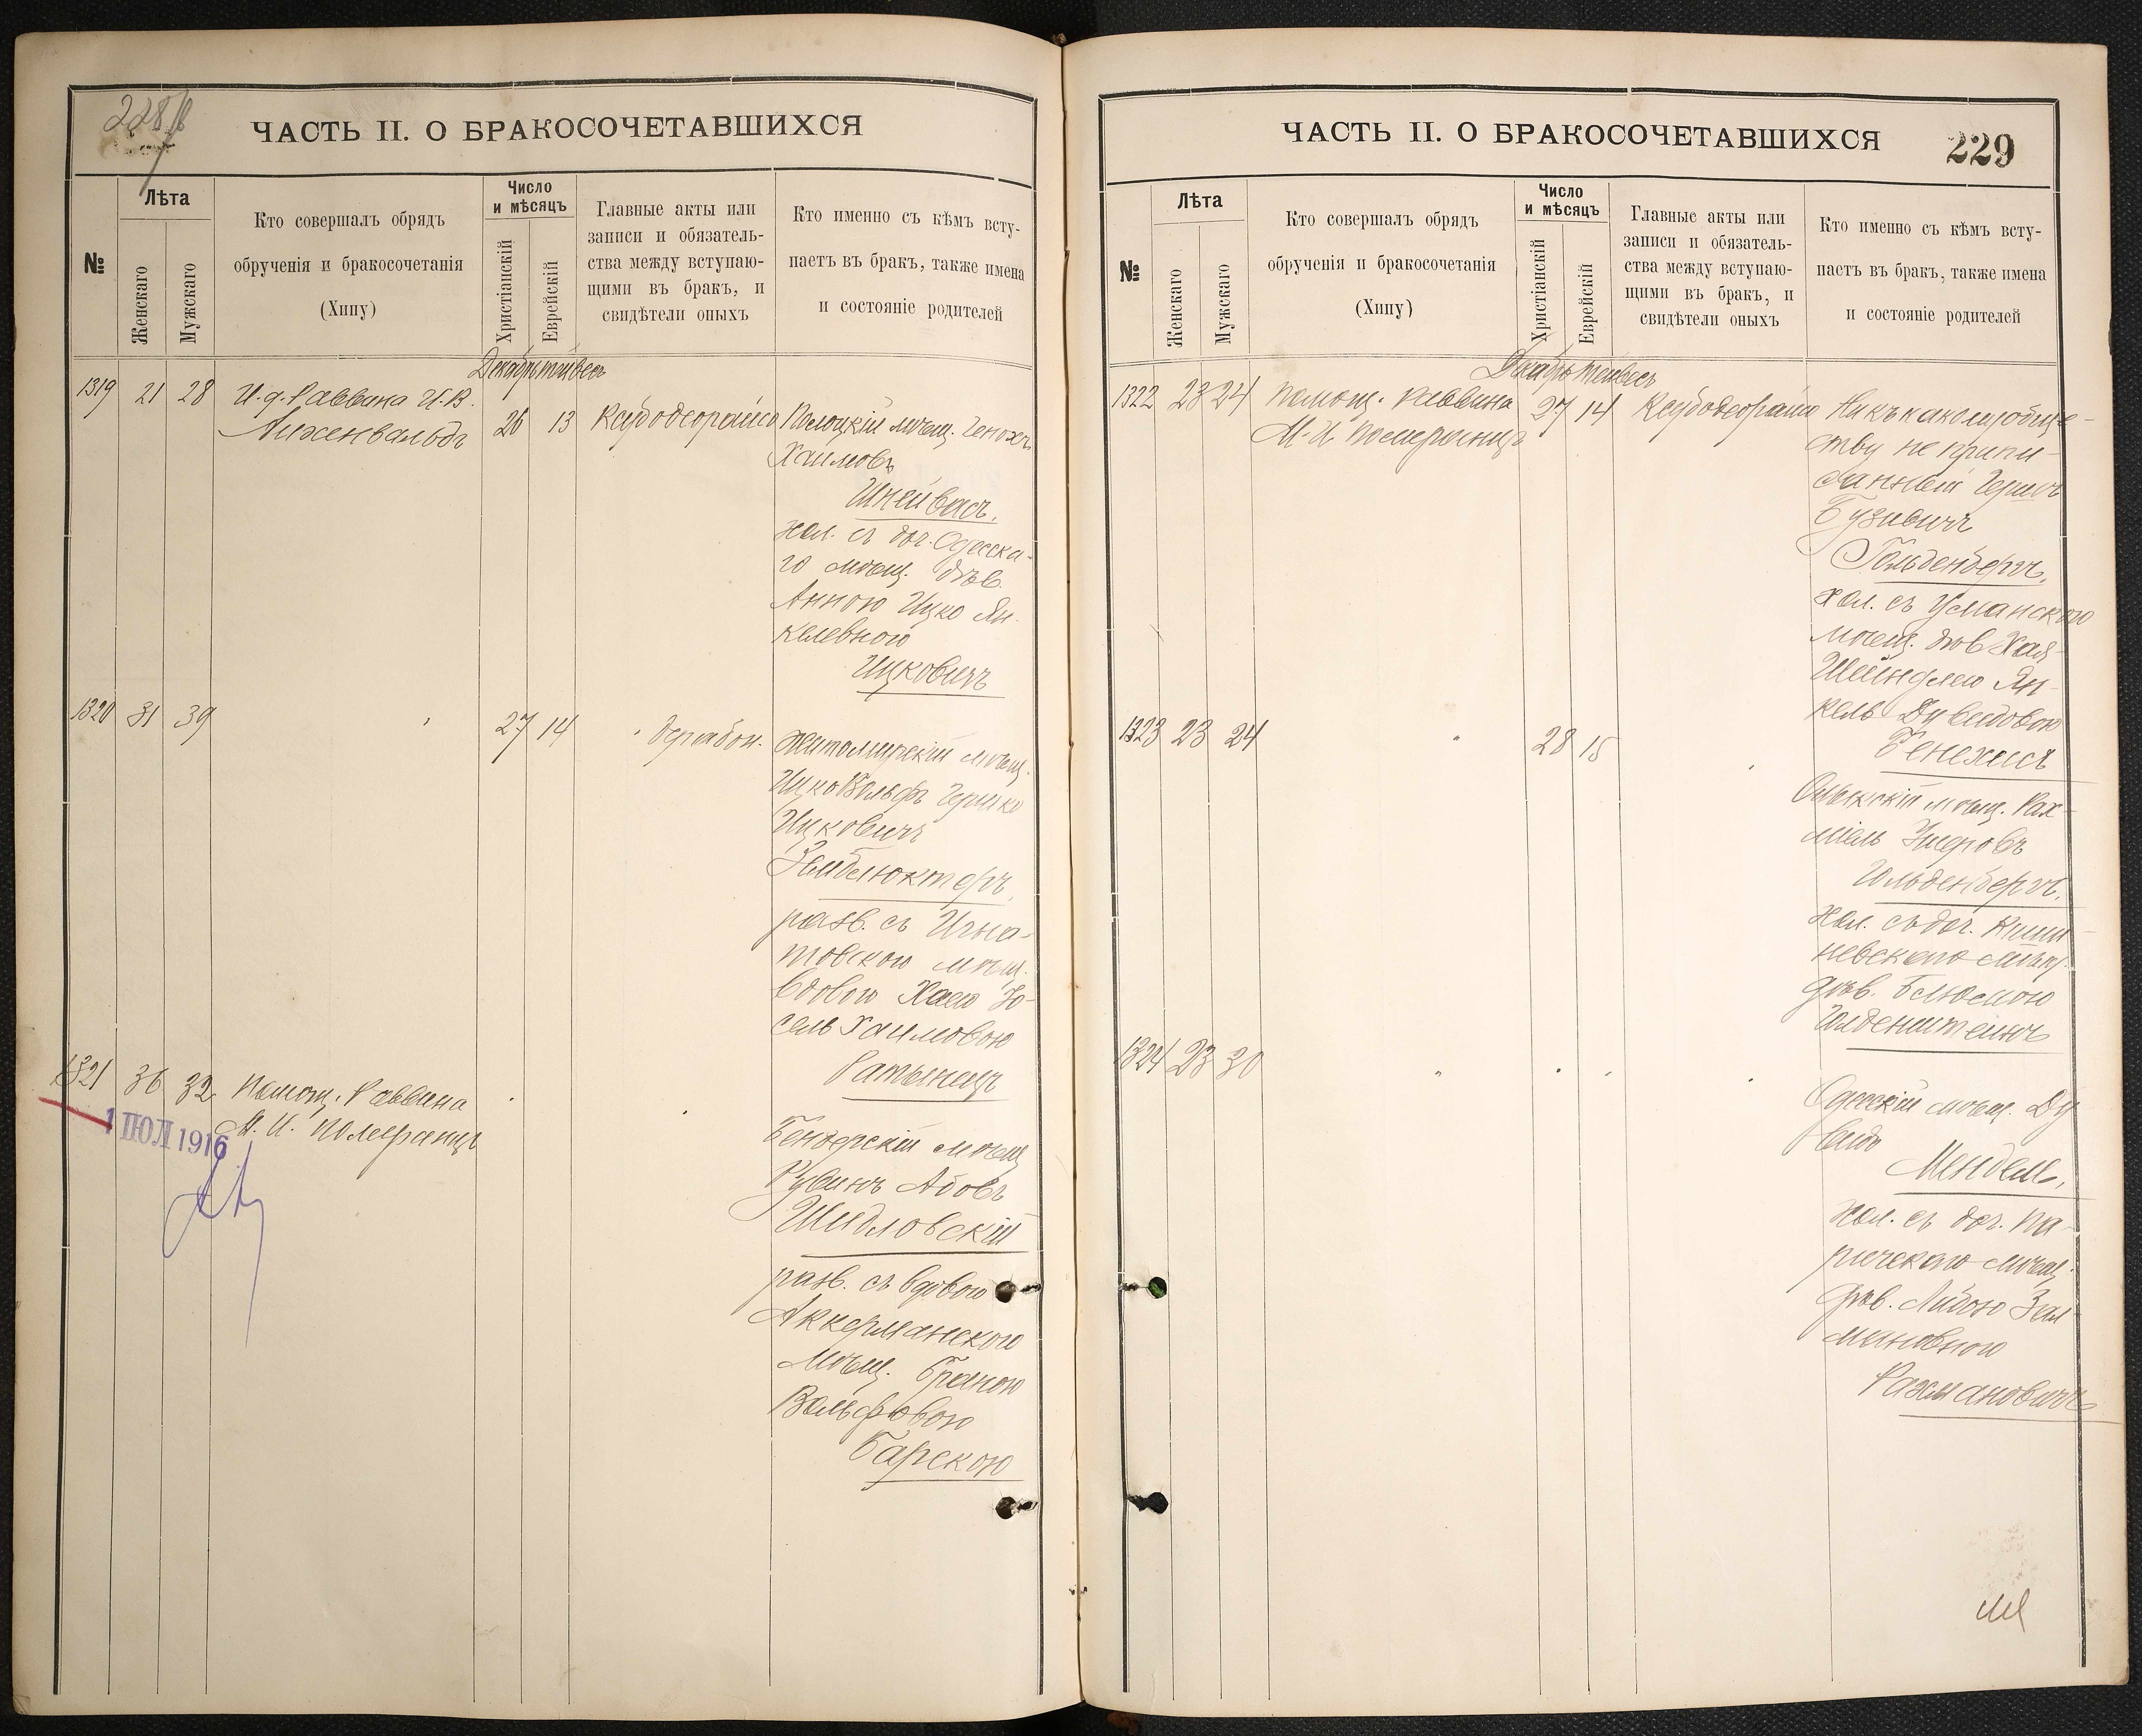 ЧАСТЬ II. О БРАКОСОЧЕТАВШИХСЯ
№
Лѣта
Женскаго
Мужскаго
Кто совершалъ обрядъ
обрученія и бракосочетанія
(Хипу)
Число
и мѣсяцъ
Христіанскій
Еврейскій
Главные акты или
записи и обязатель-
ства между вступаю-
щими въ бракъ, и
свидѣтели оныхъ
Кто именно съ кѣмъ всту-
паетъ въ бракъ, также имена
и состояніе родителей
Декабрь тейвес
1319 21 28 И. д. Раввина И. В.
Айженвальдъ
26 13
Полоцкій мѣщ. Генохъ
Хаимовъ
Шнейвасъ,
хол. съ доч. Одесска-
го мѣщ. дѣв.
Анною Ицко Ян-
келевною
Ицковичъ
1320 31 39
27 14
Житомирскій мѣщ.
Ицко Вольфъ Гершко
Ицковичъ
Зайблюктеръ,
разв. съ Игна-
товскою мѣщ.
вдовою Хаею Іо-
сель Хаимовою
1321 36 32 Помощ. Раввина
М. И. Померанцъ
1 ІЮЛ 1916
Бендерскій мѣщ.
Рувинъ Абовъ
Шидловскій
разв. съ вдовою
Аккерманскою
мѣщ. Браною
Вольфовою
Барскою
ЧАСТЬ II. О БРАКОСОЧЕТАВШИХСЯ
229
№
Лѣта
Женскаго
Мужскаго
Кто совершалъ обрядъ
обрученія и бракосочетанія
(Хипу)
Число
и мѣсяцъ
Христіанскій
Еврейскій
Главные акты или
записи и обязатель-
ства между вступаю-
щими въ бракъ, и
свидѣтели оныхъ
Кто именно съ кѣмъ всту-
паетъ въ бракъ, также имена
и состояніе родителей
Декабрь тейвесъ
1322 23 24 Помощ. Раввина
М. И. Померанцъ
27 14
Ни къ какому обще-
ству не припи-
санный Гершъ
Гольденбергъ,
хол. съ Уманскою
мѣщ. дѣв. Хая-
Шейндлею Ян-
кель Дувидовою
1323 23 24
28 15
Олыкскій мѣщ. Рах-
міель
Гольденбергъ,
хол. съ доч. Киши-
невскаго мѣщ.
дѣв. Блюмою
Голденштейнъ
1324 23 30
Одесскій мѣщ. Ду-
видъ
Мендель,
хол. съ доч. Па-
ричскаго мѣщ.
дѣв. Зел-
мановною
Рахмановичъ